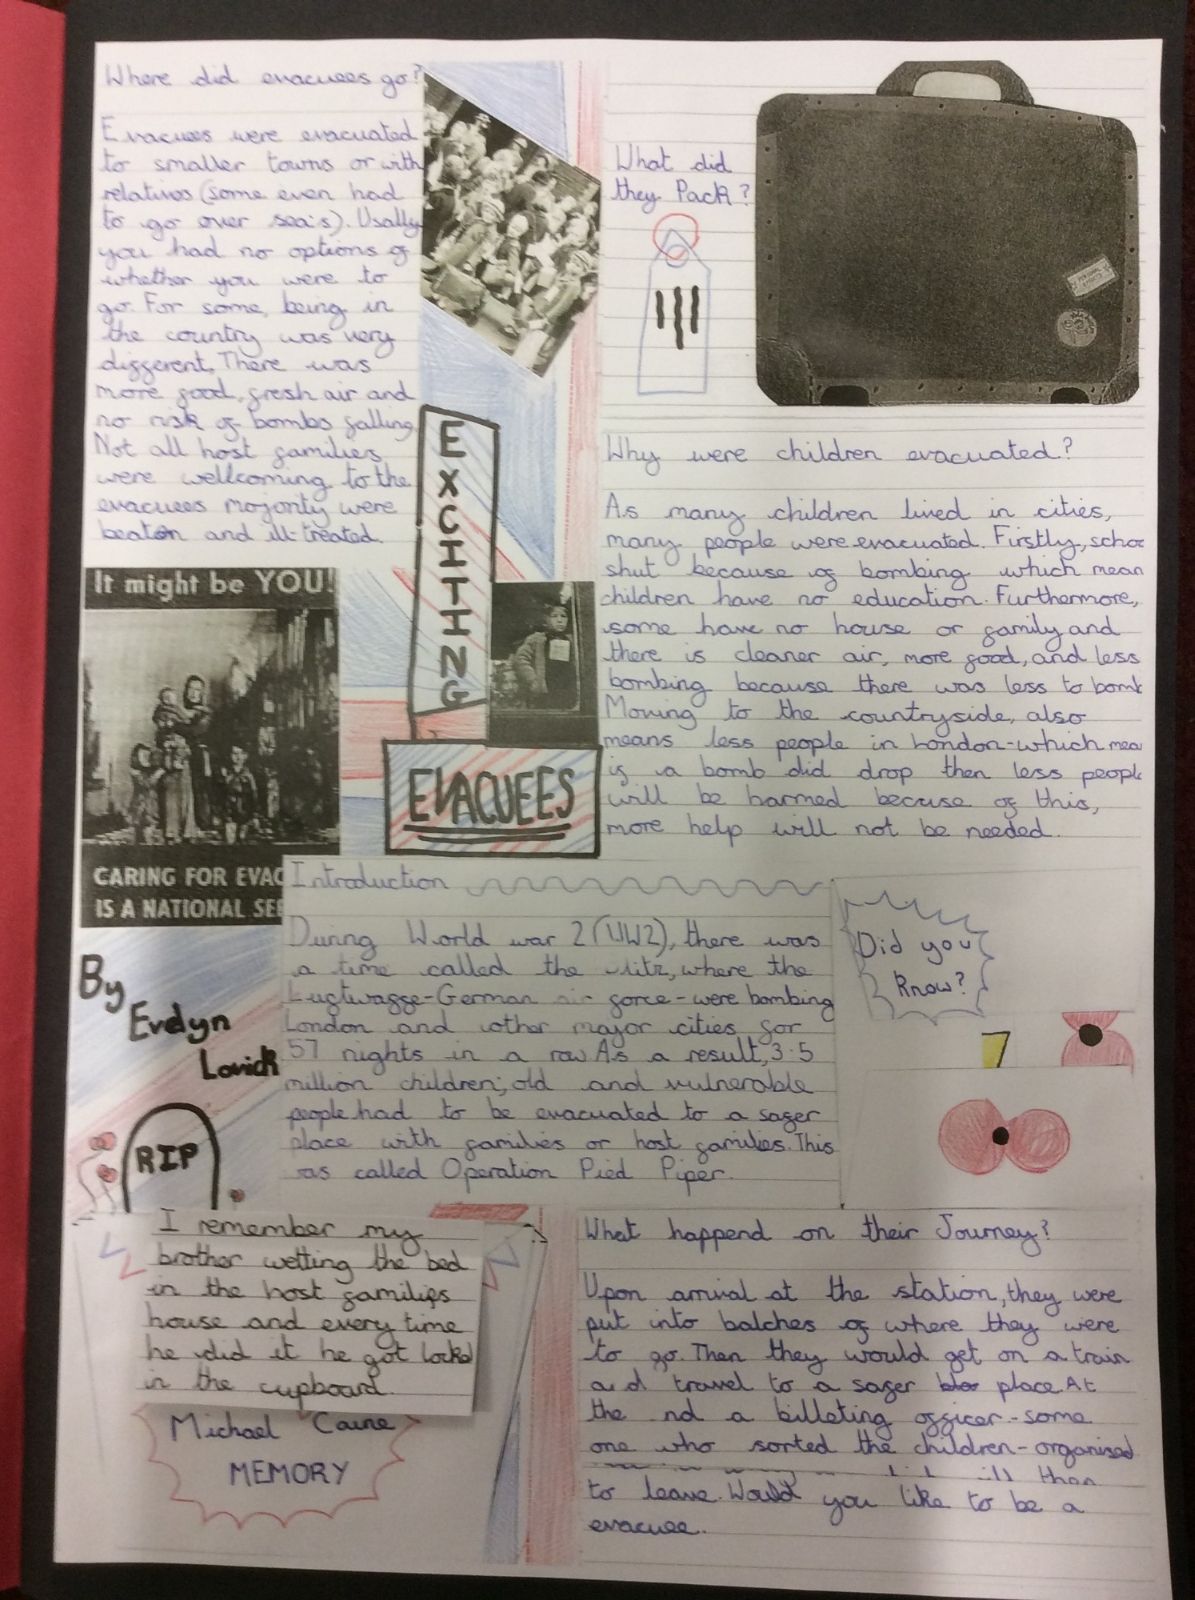 Where did evacuees go?
Evacuees were evacuated
to smaller towns or with
relatives (some even had
to go over sea's). Usally
you had no options of
whether you were to
go. For some, being in
the country was very
different. There was
more food, fresh air and
no risk of bombs falling.
Not all host families
were wellcoming to the
evacuees majority were
beaton and ill-treated.
What did
they Pack?
Why were children evacuated?
As many children lived in cities,
many people were evacuated. Firstly, schoo
shut because of bombing which mean
children have no education. Furthermore,
some have no house or family and
there is cleaner air, more food, and less
bombing because there was less to bomb
Moving to the countryside, also
means less people in London-which mea
if a bomb did drop then less people
will be harmed becuse of this,
more help will not be needed.
EXCITING
EVACUEES
It might be YOU!
CARING FOR EVAC
IS A NATIONAL SE
By
Evelyn
Lovick
RIP
Introduction
During World war 2 (WW2), there was
a time called the litz, where the
Luftwaffe-German air force-were bombing
London and other major cities for
57 nights in a row As a result, 3.5
million children, old and vulnerable
people had to be evacuated to a safer
place with families or host families. This
was called Operation Pied Piper.
Did you
know?
I remember my
brother wetting the bed
in the host families
house and every time
he did it he got locked
in the cupboard.
Michael Caine
MEMORY
What happend on their Journey?
Upon arrival at the station, they were
put into batches of where they were
to go. Then they would get on a train
and travel to a safer place. At
the nd a billeting officer-some
one who sorted the children-organised
to leave. Would you like to be a
evacuee..